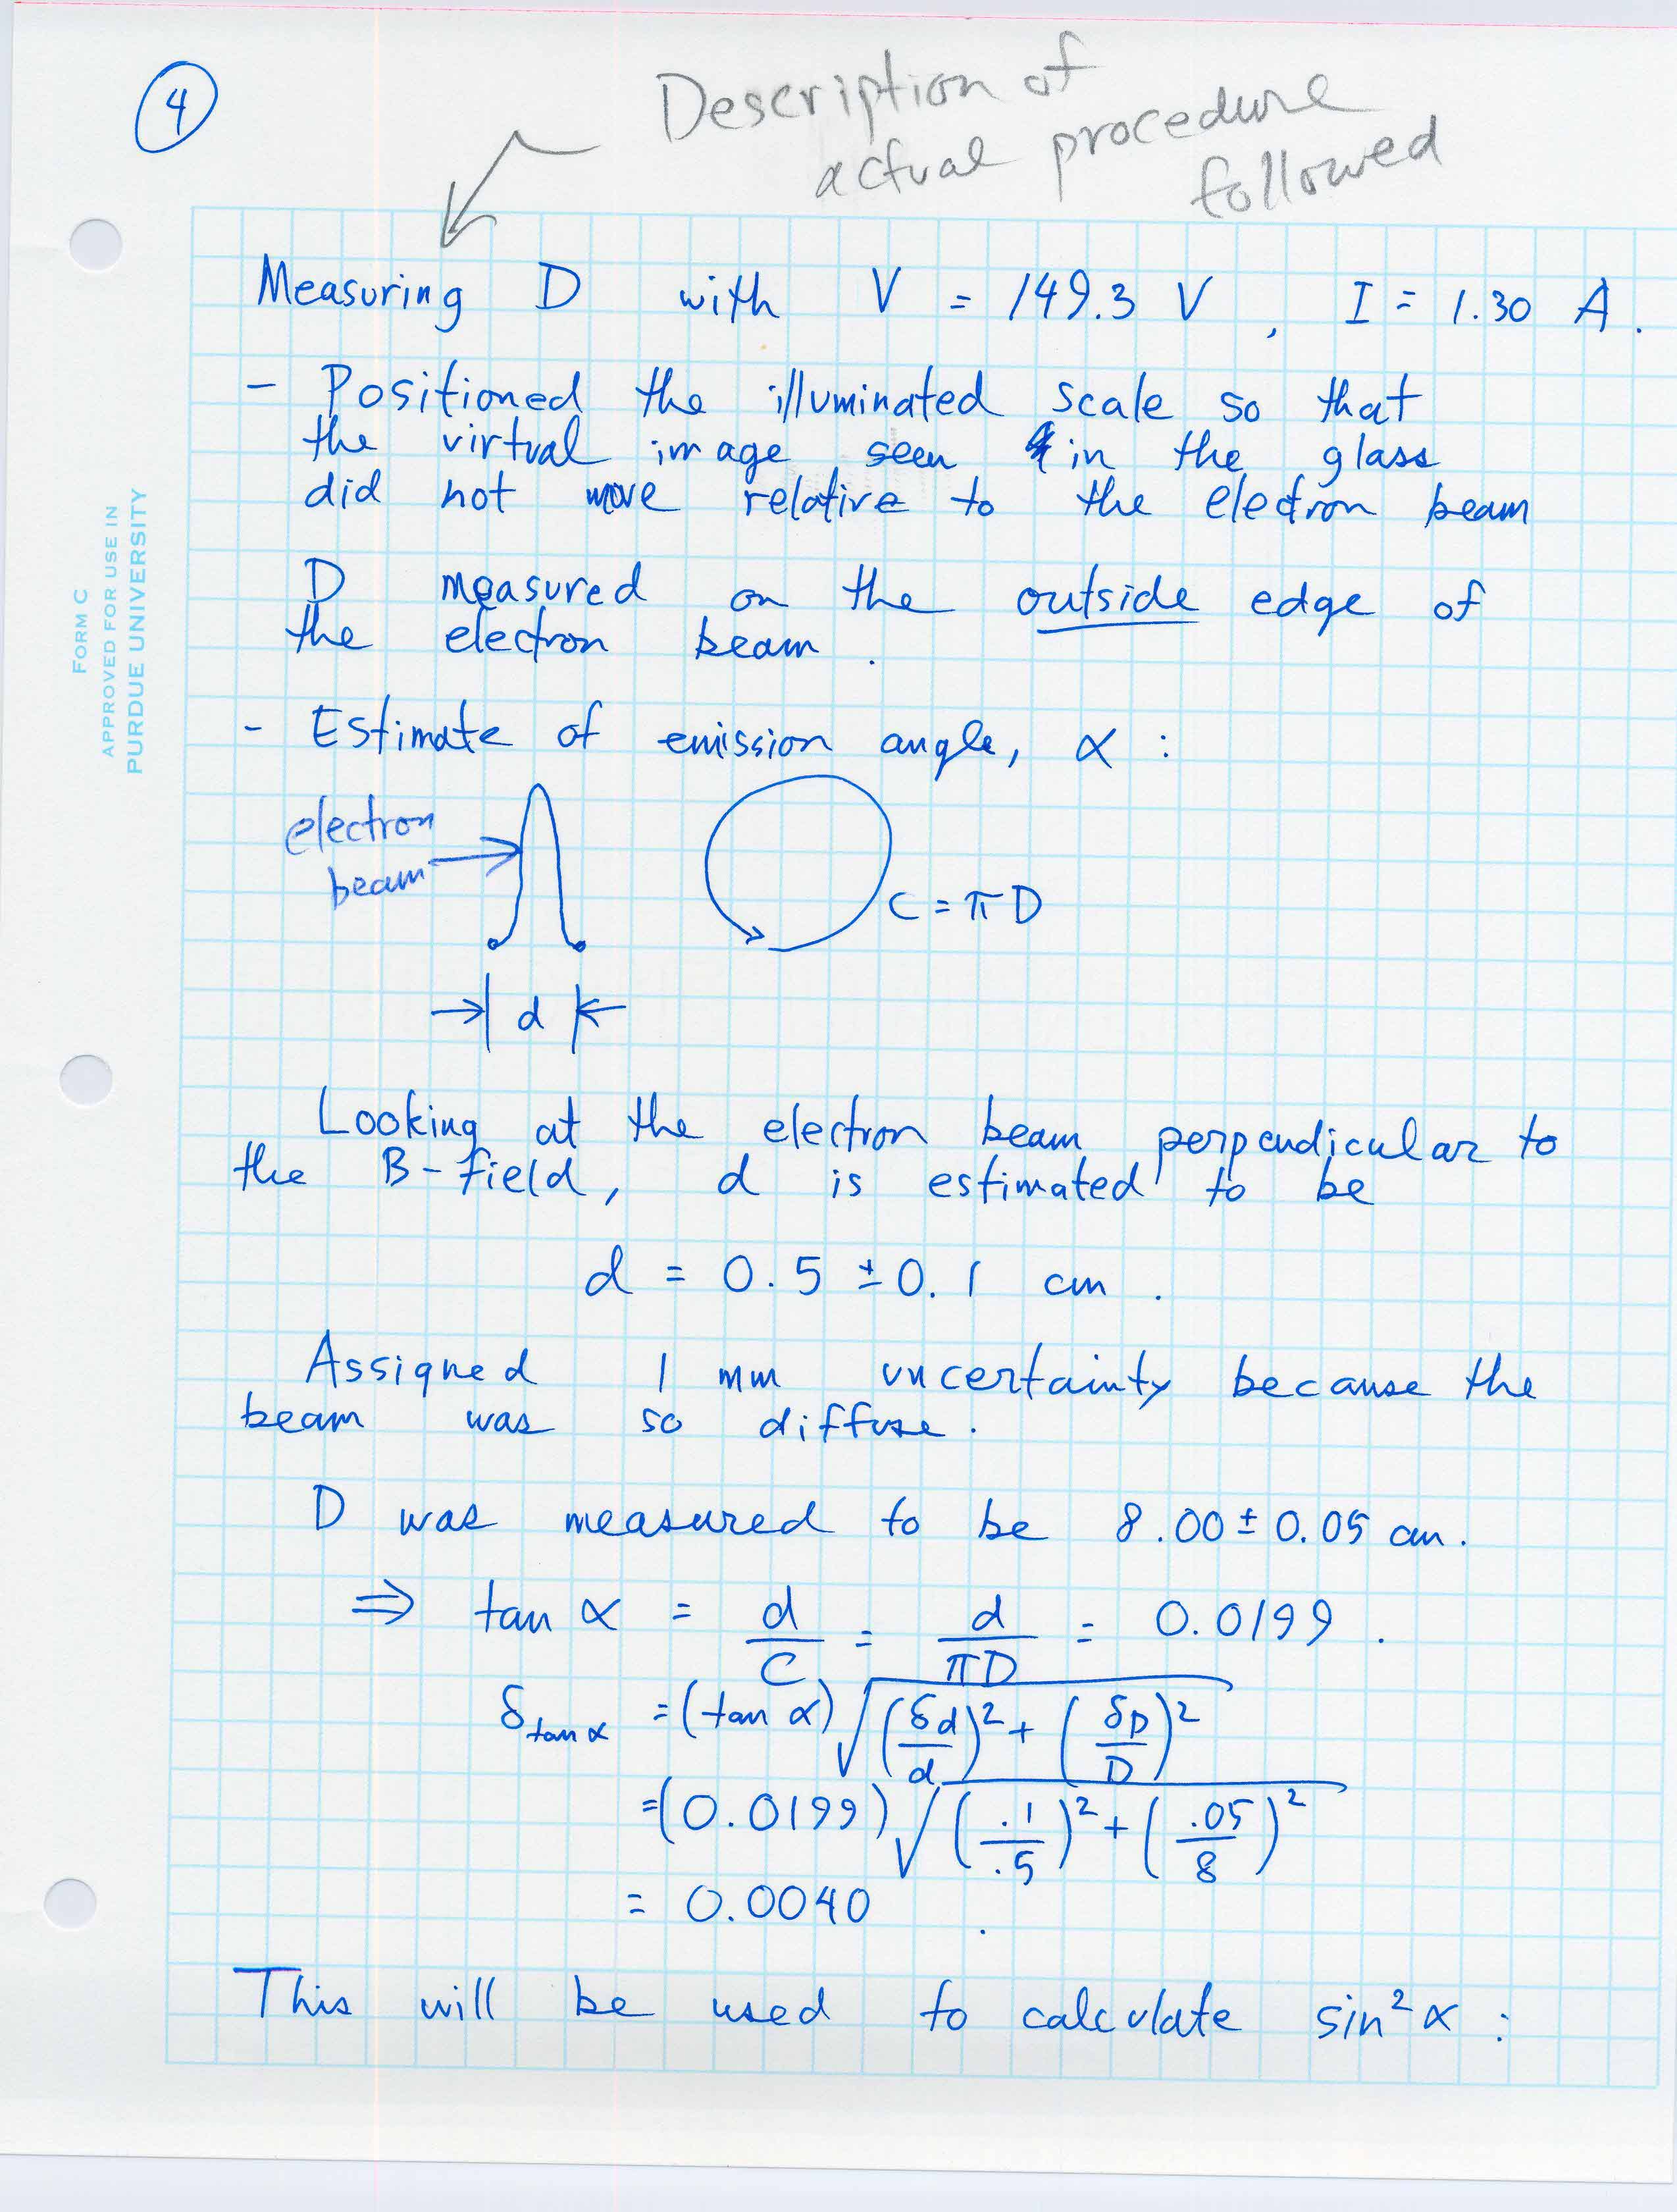 4
Description of
actual procedure
followed
Measuring D with V = 149.3 V , I = 1.30 A .
- Positioned the illuminated scale so that
the virtual image seen in the glass
did not move relative to the electron beam
D measured on the outside edge of
the electron beam .
- Estimate of emission angle, α :
electron
beam
C = π D
d
Looking at the electron beam perpendicular to
the B-field, d is estimated to be
d = 0.5 ± 0.1 cm .
Assigned 1 mm uncertainty because the
beam was so diffuse .
D was measured to be 8.00 ± 0.05 cm .
⇒ tan α = d/C = d/πD = 0.0199 .
δtan α = (tan α) √((δd/d)² + (δD/D)²)
= (0.0199) √((.1/.5)² + (.05/8)²)
= 0.0040 .
This will be used to calculate sin² α :
FORM C
APPROVED FOR USE IN
PURDUE UNIVERSITY